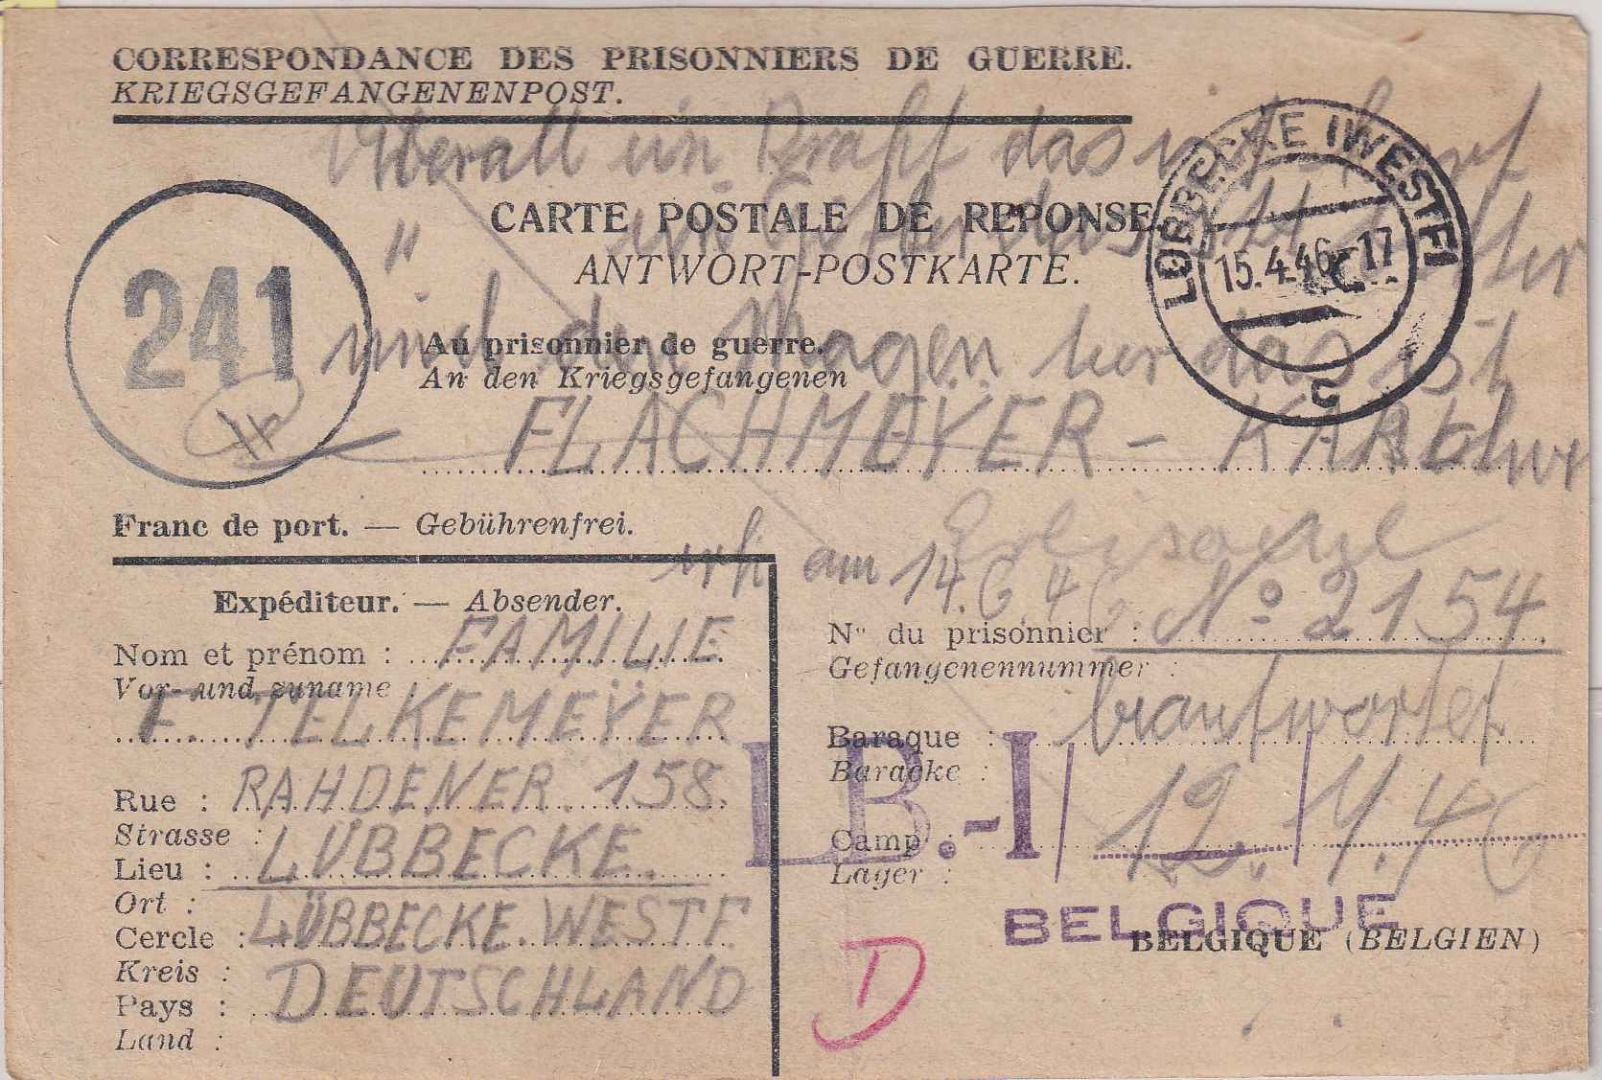 CORRESPONDANCE DES PRISONNIERS DE GUERRE.
KRIEGSGEFANGENENPOST.
Überall ein Draht das
CARTE POSTALE DE REPONSE
"
ANTWORT-POSTKARTE.
LÜBBECKE (WESTF)
15.4.46 - 17
241
Au prisonnier de guerre.
den Magen das ist
An den Kriegsgefangenen
FLACHMEYER - KARL
Franc de port. — Gebührenfrei.
am 14.6.46
Expéditeur. — Absender.
Nº du prisonnier : Nº 2154
Gefangenennummer :
Nom et prénom : FAMILIE
Vor- und zuname
F. TELKEMEYER
Baraque : beantwortet
Baracke :
Rue : RAHDENER 158.
Strasse :
I.B.-I/ /
Camp : 12.4.46
Lager :
Lieu : LÜBBECKE.
Ort :
Cercle : LÜBBECKE. WESTF
Kreis :
BELGIQUE
BELGIQUE (BELGIEN)
Pays : DEUTSCHLAND
Land :
D